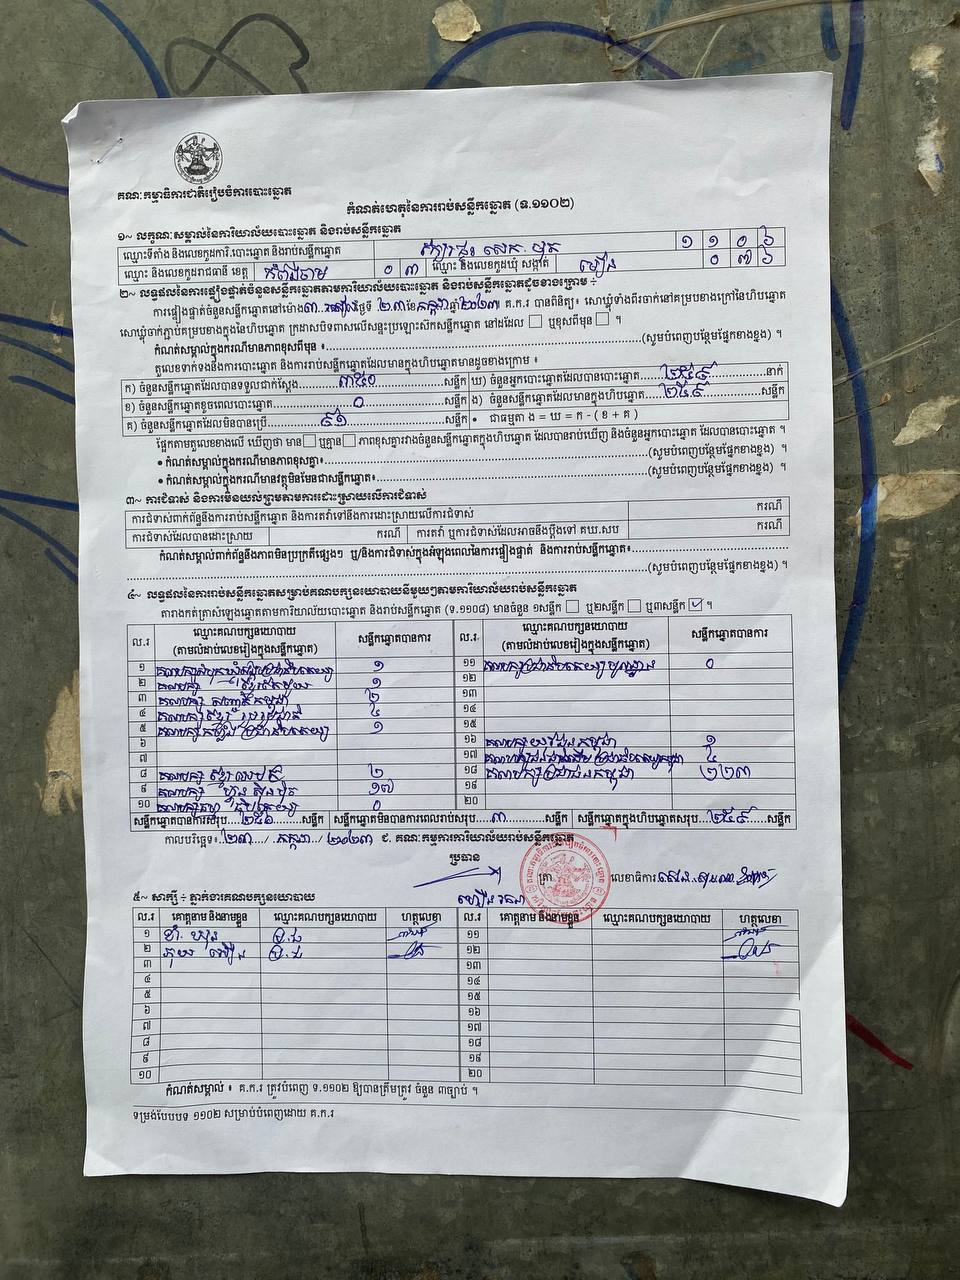 គណៈកម្មាធិការជាតិរៀបចំការបោះឆ្នោត
កំណត់ហេតុនៃការរាប់សន្លឹកឆ្នោត (ទ.១១០២)
១~ លក្ខណៈសម្គាល់នៃការិយាល័យបោះឆ្នោត និងរាប់សន្លឹកឆ្នោត
ឈ្មោះទីតាំង និងលេខកូដការិ.បោះឆ្នោត និងរាប់សន្លឹកឆ្នោត ១ ១ ០ ៦
ឈ្មោះ និងលេខកូដរាជធានី ខេត្ត កំពង់ចាម ០ ៣ ឈ្មោះ និងលេខកូដឃុំ សង្កាត់ មៀន ០ ៧ ៦
២~ លទ្ធផលនៃការផ្ទៀងផ្ទាត់ចំនួនសន្លឹកឆ្នោតតាមការិយាល័យបោះឆ្នោត និងរាប់សន្លឹកឆ្នោតដូចខាងក្រោម ÷
ការផ្ទៀងផ្ទាត់ចំនួនសន្លឹកឆ្នោតនៅម៉ោង ៣ រសៀល ថ្ងៃទី ២៣ ខែ កក្កដា ឆ្នាំ ២០២៣ គ.ក.រ បានពិនិត្យ៖ សោឃ្លុំទាំងពីរចាក់នៅគម្របខាងក្រៅនៃហិបឆ្នោត
សោឃ្លុំចាក់ភ្ជាប់គម្របខាងក្នុងនៃហិបឆ្នោត ក្រដាសបិទពាសលើសន្ទះប្រឡោះស៊កសន្លឹកឆ្នោត នៅដដែល ☐ ឬខុសពីមុន ☐ ។
កំណត់សម្គាល់ក្នុងករណីមានភាពខុសពីមុន ៖ (សូមបំពេញបន្ថែមផ្នែកខាងខ្នង) ។
តួលេខទាក់ទងនឹងការបោះឆ្នោត និងការរាប់សន្លឹកឆ្នោតដែលមានក្នុងហិបឆ្នោតមានដូចខាងក្រោម ៖
ក) ចំនួនសន្លឹកឆ្នោតដែលបានទទួលជាក់ស្តែង ៣៥០ សន្លឹក ឃ) ចំនួនអ្នកបោះឆ្នោតដែលបានបោះឆ្នោត ២៥៩ នាក់
ខ) ចំនួនសន្លឹកឆ្នោតខូចពេលបោះឆ្នោត ០ សន្លឹក ង) ចំនួនសន្លឹកឆ្នោតដែលមានក្នុងហិបឆ្នោត ២៥៩ សន្លឹក
គ) ចំនួនសន្លឹកឆ្នោតដែលមិនបានប្រើ ៩១ សន្លឹក • ជាធម្មតា ង = ឃ = ក - ( ខ + គ )
ផ្អែកតាមតួលេខខាងលើ ឃើញថា មាន ☐ ឬគ្មាន ☐ ភាពខុសគ្នារវាងចំនួនសន្លឹកឆ្នោតក្នុងហិបឆ្នោត ដែលបានរាប់ឃើញ និងចំនួនអ្នកបោះឆ្នោត ដែលបានបោះឆ្នោត ។
• កំណត់សម្គាល់ក្នុងករណីមានភាពខុសគ្នា៖ (សូមបំពេញបន្ថែមផ្នែកខាងខ្នង) ។
• កំណត់សម្គាល់ក្នុងករណីមានវត្ថុមិនមែនជាសន្លឹកឆ្នោត៖ (សូមបំពេញបន្ថែមផ្នែកខាងខ្នង) ។
៣~ ការជំទាស់ និងការមិនយល់ព្រមតាមការដោះស្រាយលើការជំទាស់
ការជំទាស់ពាក់ព័ន្ធនឹងការរាប់សន្លឹកឆ្នោត និងការតវ៉ាទៅនឹងការដោះស្រាយលើការជំទាស់ ករណី
ការជំទាស់ដែលបានដោះស្រាយ ករណី ការតវ៉ា ឬការជំទាស់ដែលអាចនឹងប្តឹងទៅ គឃ.សប ករណី
កំណត់សម្គាល់ពាក់ព័ន្ធនឹងភាពមិនប្រក្រតីផ្សេងៗ ឬ/និងការជំទាស់ក្នុងអំឡុងពេលនៃការផ្ទៀងផ្ទាត់ និងការរាប់សន្លឹកឆ្នោត៖
(សូមបំពេញបន្ថែមផ្នែកខាងខ្នង) ។
៤~ លទ្ធផលនៃការរាប់សន្លឹកឆ្នោតសម្រាប់គណបក្សនយោបាយនីមួយៗតាមការិយាល័យរាប់សន្លឹកឆ្នោត
តារាងកត់ត្រាសំឡេងឆ្នោតតាមការិយាល័យបោះឆ្នោត និងរាប់សន្លឹកឆ្នោត (ទ.១១០៨) មានចំនួន ១សន្លឹក ☐ ឬ២សន្លឹក ☐ ឬ៣សន្លឹក ☑ ។
ល.រ ឈ្មោះគណបក្សនយោបាយ សន្លឹកឆ្នោតបានការ ល.រ ឈ្មោះគណបក្សនយោបាយ សន្លឹកឆ្នោតបានការ
(តាមលំដាប់លេខរៀងក្នុងសន្លឹកឆ្នោត) (តាមលំដាប់លេខរៀងក្នុងសន្លឹកឆ្នោត)
១ ១ ១១ ០
២ គណបក្ស ខ្មែរតែមួយ ១ ១២
៣ គណបក្ស សញ្ជាតិកម្ពុជា ២ ១៣
៤ គណបក្ស ខ្មែររួបរួមជាតិ ៤ ១៤
៥ គណបក្ស កម្លាំងប្រជាធិបតេយ្យ ១ ១៥
៦ ១៦ គណបក្ស យុវជនកម្ពុជា ១
៧ ១៧ ៤
៨ គណបក្ស ២ ១៨ គណបក្ស ប្រជាជនកម្ពុជា ២២៣
៩ គណបក្ស ហ្វ៊ុនស៊ិនប៉ិច ១៧ ១៩
១០ គណបក្ស ធម្មាធិបតេយ្យ ០ ២០
សន្លឹកឆ្នោតបានការសរុប ២៥៦ សន្លឹក សន្លឹកឆ្នោតមិនបានការពេលរាប់សរុប ៣ សន្លឹក សន្លឹកឆ្នោតក្នុងហិបឆ្នោតសរុប ២៥៩ សន្លឹក
កាលបរិច្ឆេទ៖ ២៣ / កក្កដា / ២០២៣ ជ. គណៈកម្មការការិយាល័យរាប់សន្លឹកឆ្នោត
ប្រធាន
ត្រា លេខាធិការ
៥~ សាក្សី ÷ ភ្នាក់ងារគណបក្សនយោបាយ
ល.រ គោត្តនាម និងនាមខ្លួន ឈ្មោះគណបក្សនយោបាយ ហត្ថលេខា ល.រ គោត្តនាម និងនាមខ្លួន ឈ្មោះគណបក្សនយោបាយ ហត្ថលេខា
១ ប្រ.ជ ១១
២ ប្រ.ជ ១២
៣ ១៣
៤ ១៤
៥ ១៥
៦ ១៦
៧ ១៧
៨ ១៨
៩ ១៩
១០ ២០
កំណត់សម្គាល់ ៖ គ.ក.រ ត្រូវបំពេញ ទ.១១០២ ឱ្យបានត្រឹមត្រូវ ចំនួន ៣ច្បាប់ ។
ទម្រង់បែបបទ ១១០២ សម្រាប់បំពេញដោយ គ.ក.រ